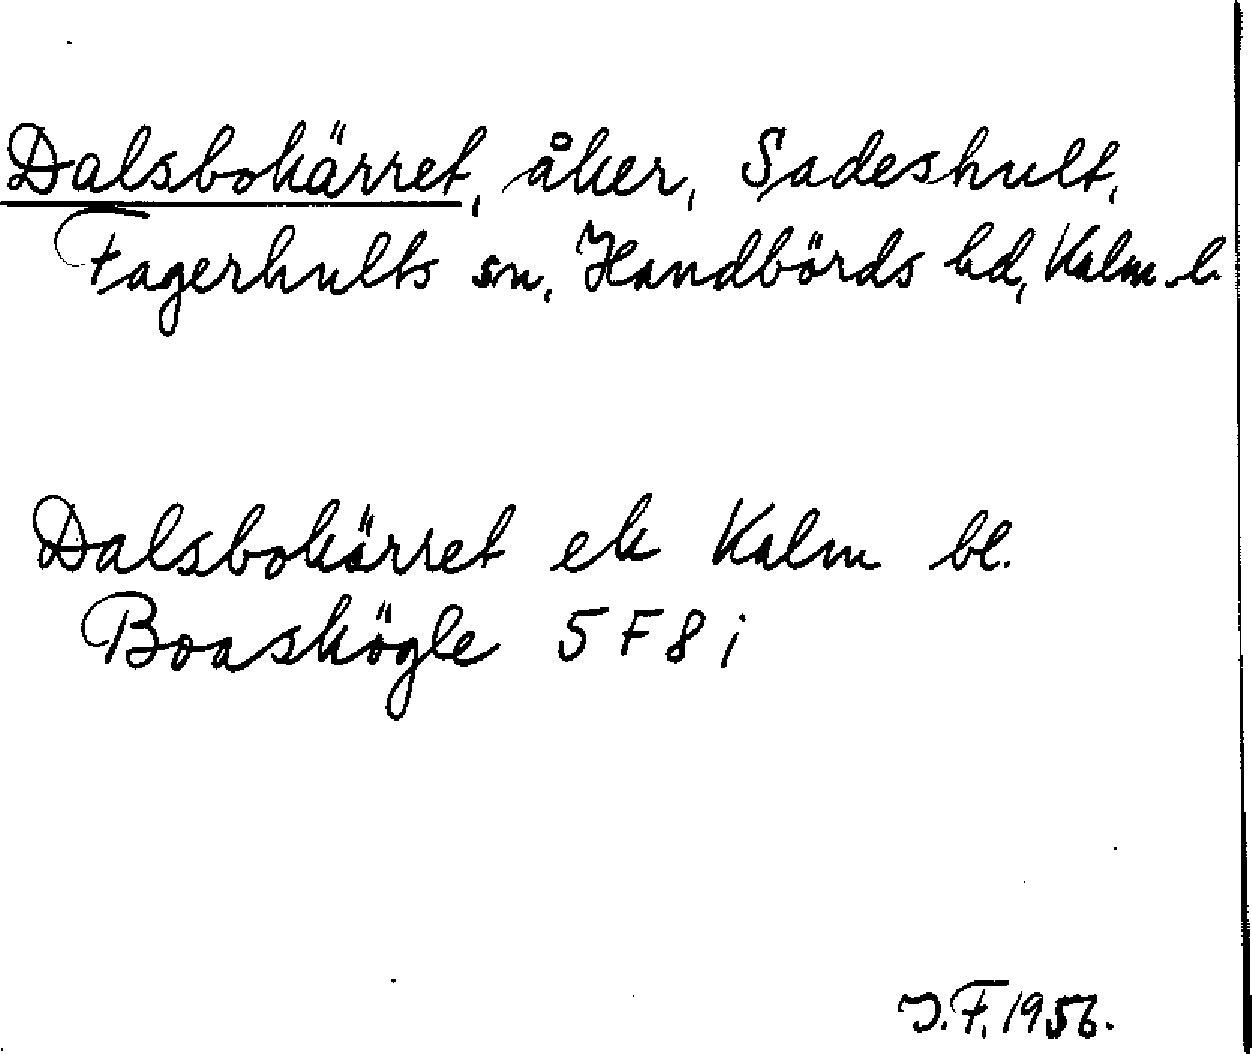 Dalsbokärret, åker, Sadeshult,
Fagerhults sn, Handbörds hd, Kalm. l.
Dalsbokärret ek Kalm bl.
Boaskögle 5 F 8 i
J.F. 1956.